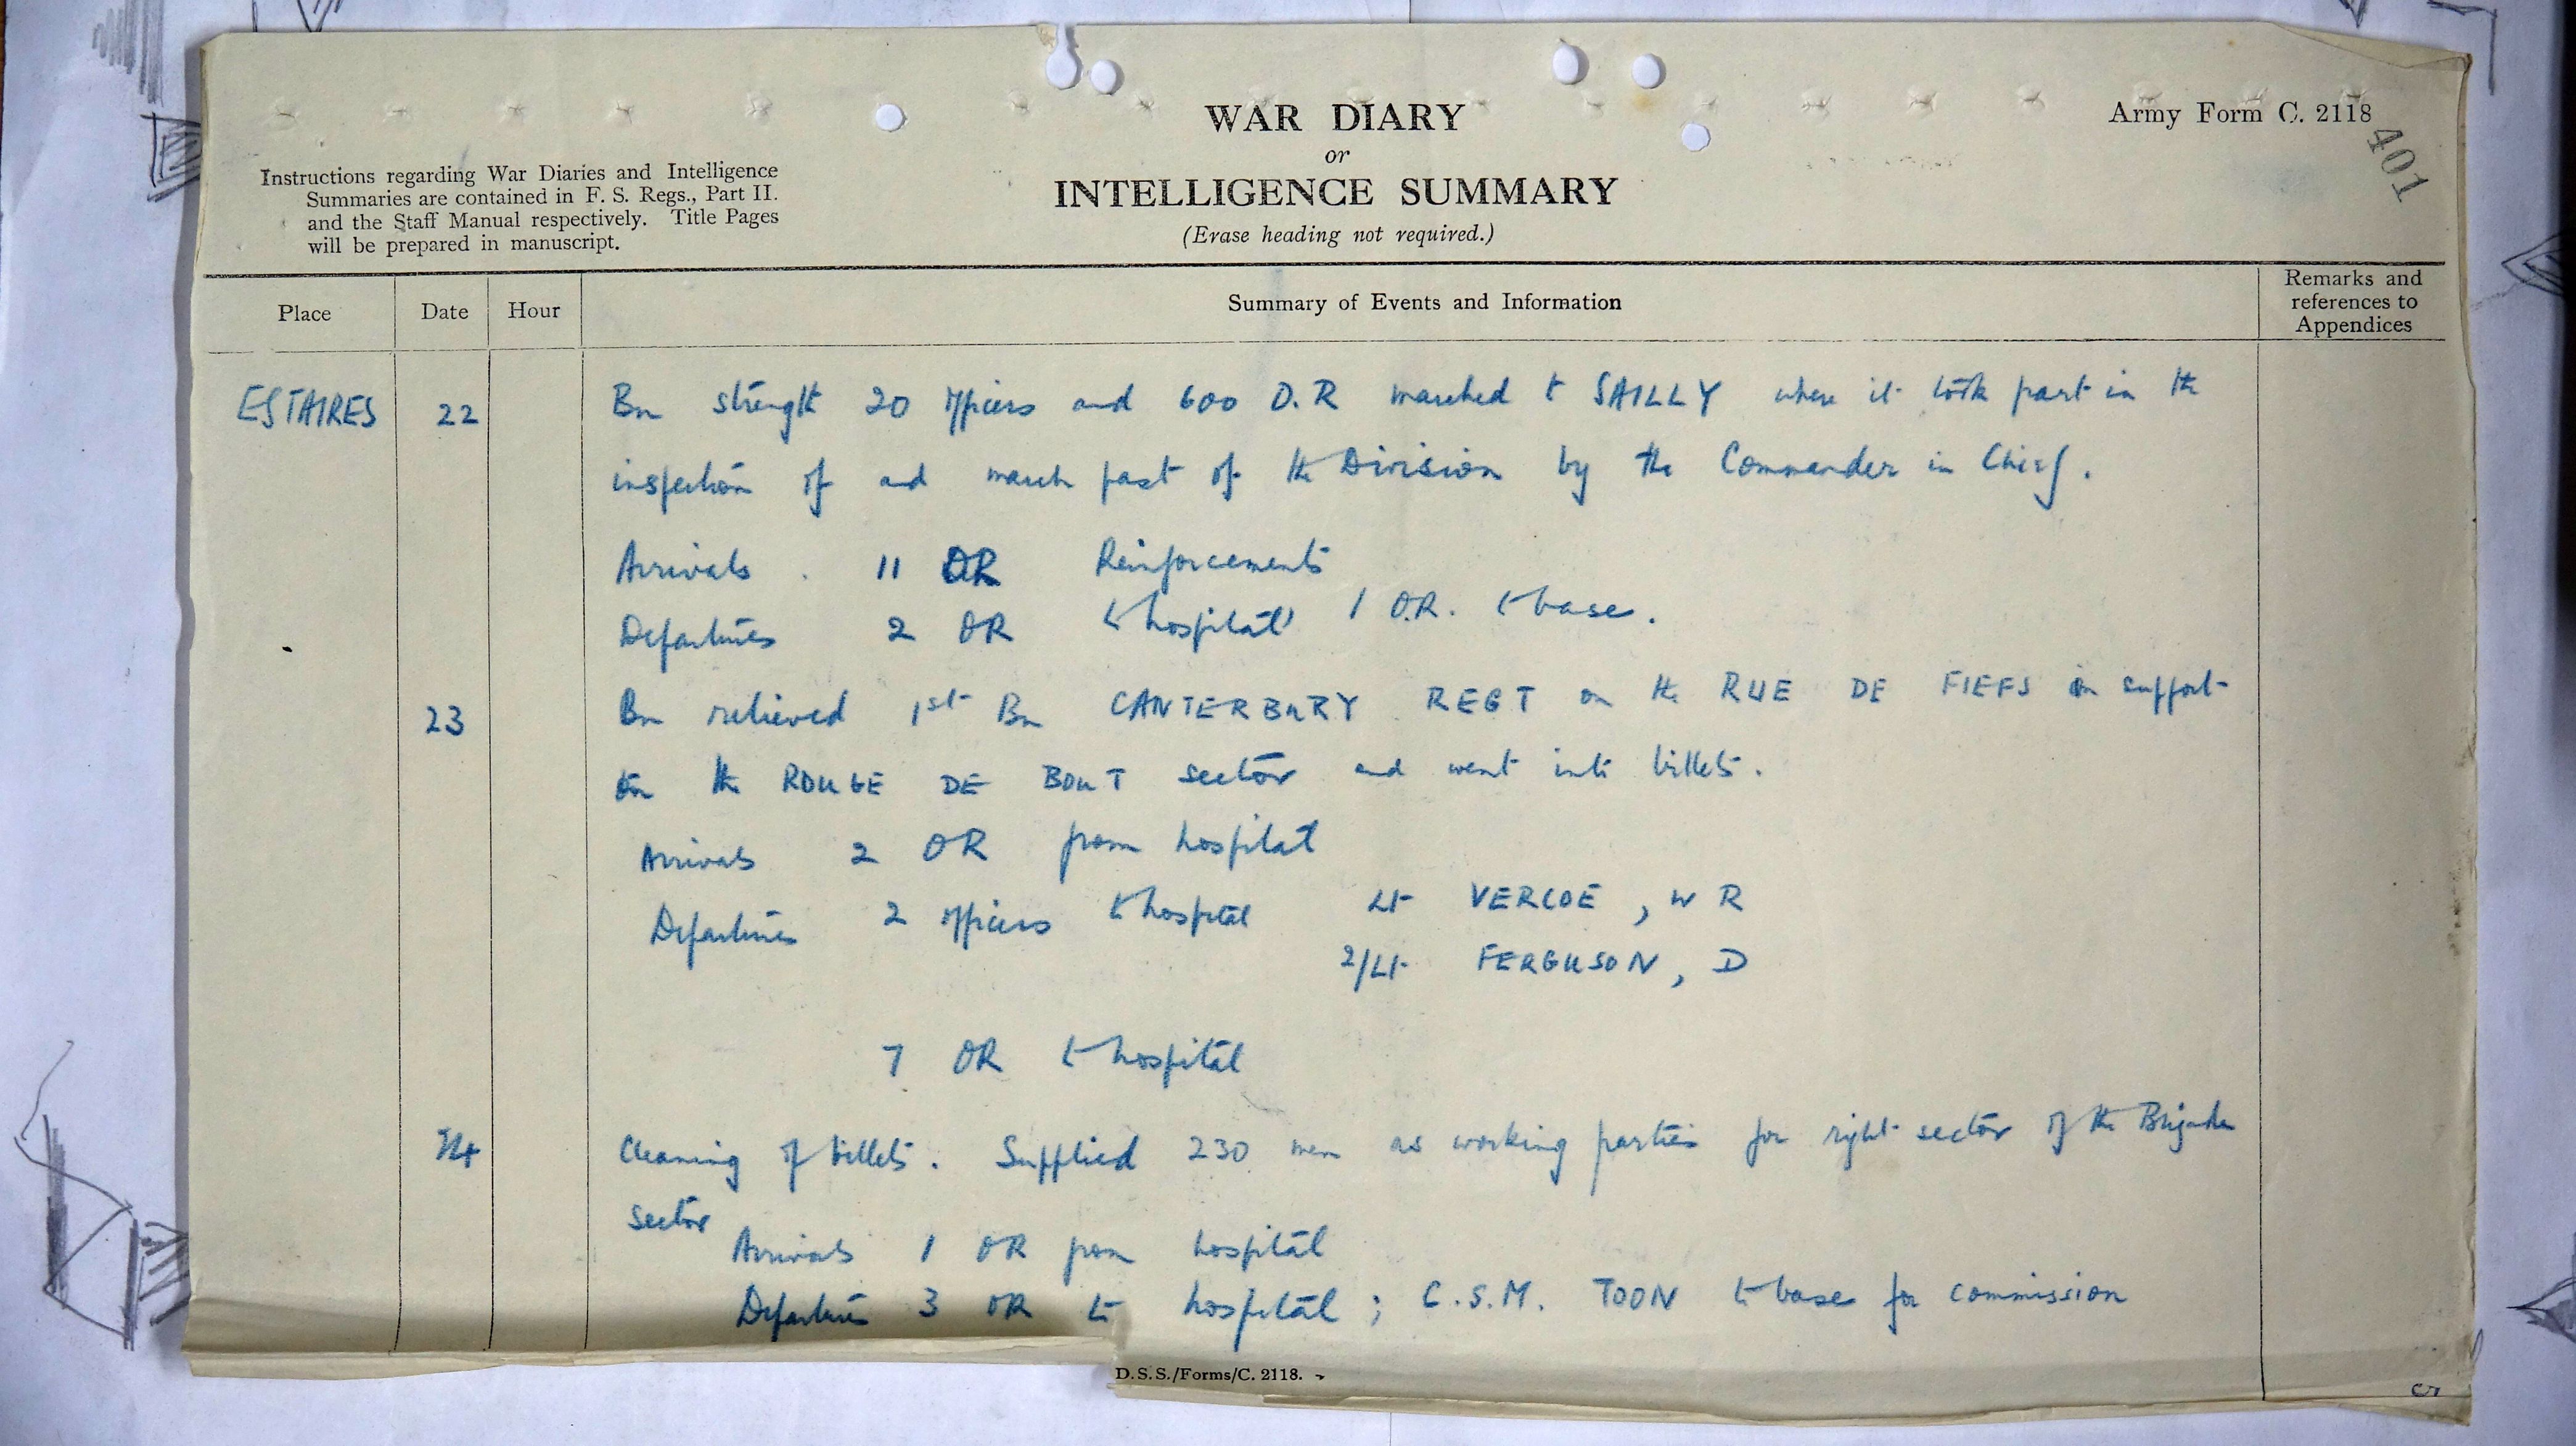 WAR DIARY
or
INTELLIGENCE SUMMARY
(Erase heading not required.)
Army Form C. 2118
401
Instructions regarding War Diaries and Intelligence
Summaries are contained in F. S. Regs., Part II.
and the Staff Manual respectively. Title Pages
will be prepared in manuscript.
Place Date Hour Summary of Events and Information Remarks and
references to
Appendices
ESTAIRES 22 Bn strength 20 officers and 600 O.R marched to SAILLY where it took part in the
inspection of and march past of the Division by the Commander in Chief.
Arrivals . 11 OR Reinforcements
Departures 2 OR to hospital 1 O.R. to base.
23 Bn relieved 1st Bn CANTERBURY REGT on the RUE DE FIEFS in support
in the ROUGE DE BOUT sector and went into billets.
Arrivals 2 OR from hospital
Departures 2 officers to hospital Lt VERCOE, W R
2/Lt FERGUSON, D
7 OR to hospital
24 Cleaning of billets. Supplied 230 men as working parties for right sector of the Brigade
sector
Arrivals 1 OR from hospital
Departures 3 OR to hospital ; C.S.M. TOON to base for commission
D.S.S./Forms/C. 2118.